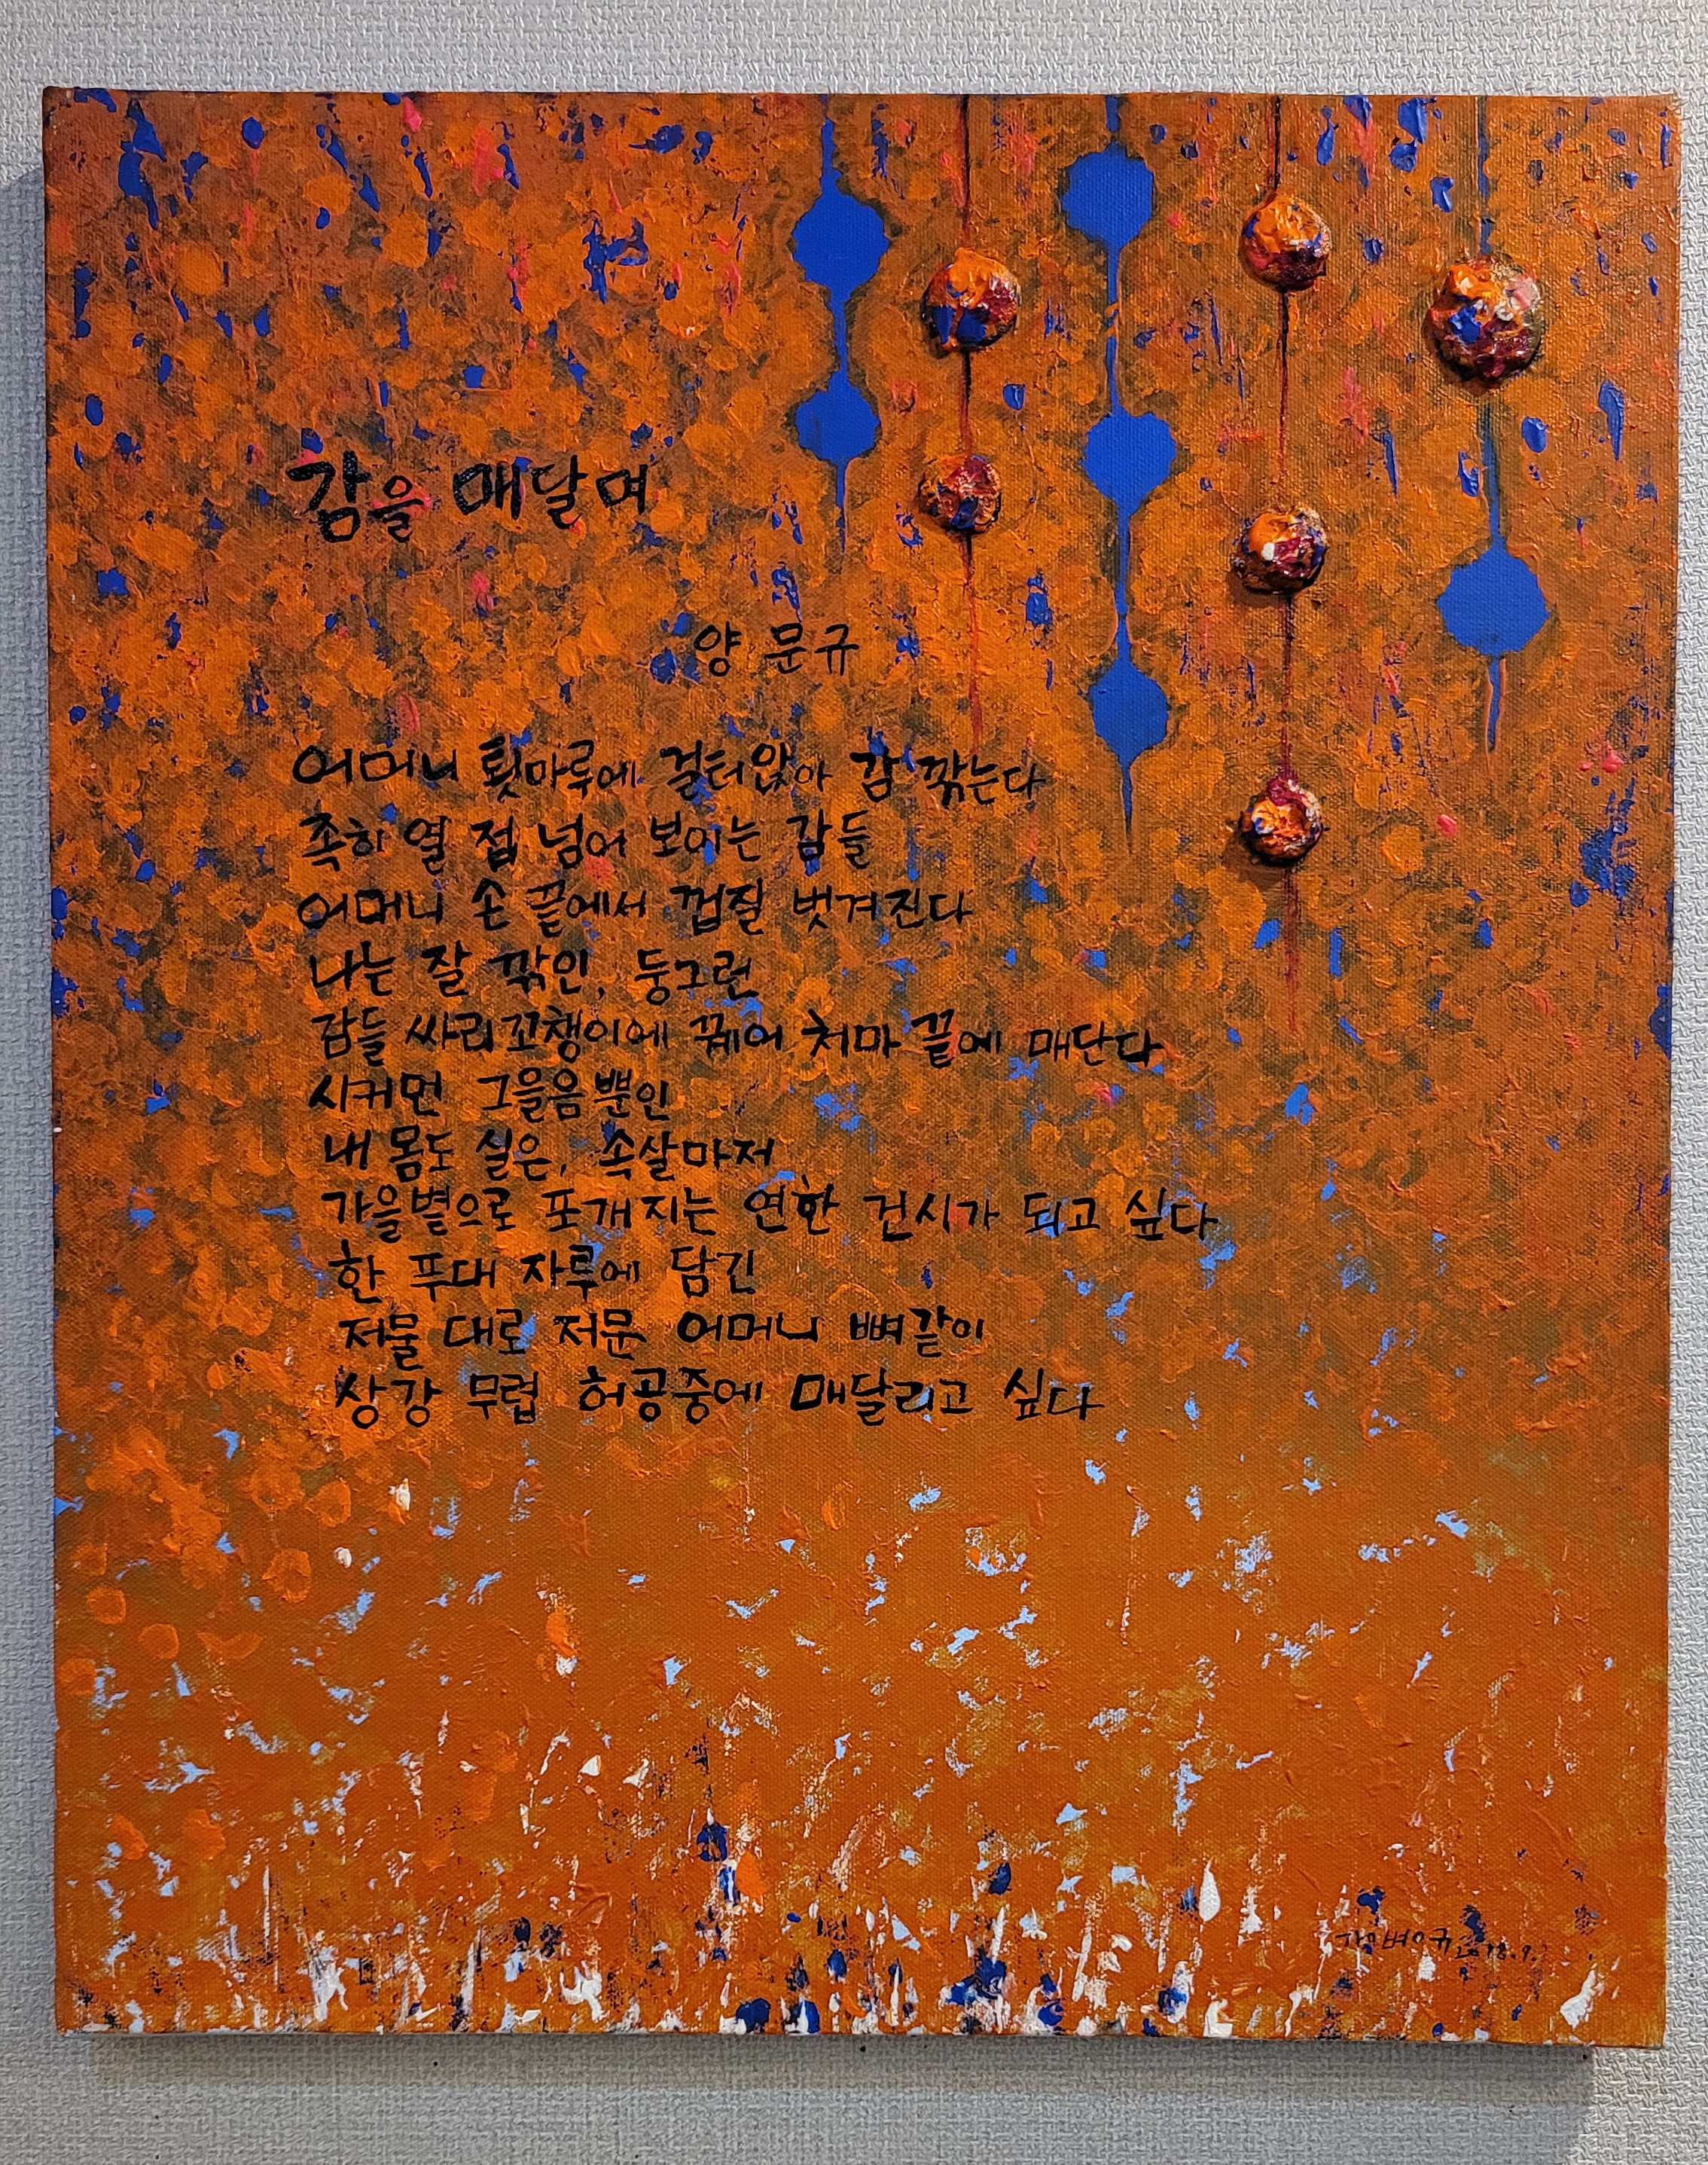 감을 매달며
양 문규
어머니 툇마루에 걸터앉아 감 깎는다
족히 열 접 넘어 보이는 감들
어머니 손 끝에서 껍질 벗겨진다
나는 잘 깎인, 둥그런
감들 싸리꼬챙이에 꿰어 처마 끝에 매단다
시커먼 그을음뿐인
내 몸도 실은, 속살마저
가을볕으로 포개지는 연한 건시가 되고 싶다
한 푸대 자루에 담긴
저물 대로 저문 어머니 뼈같이
상강 무렵 허공중에 매달리고 싶다